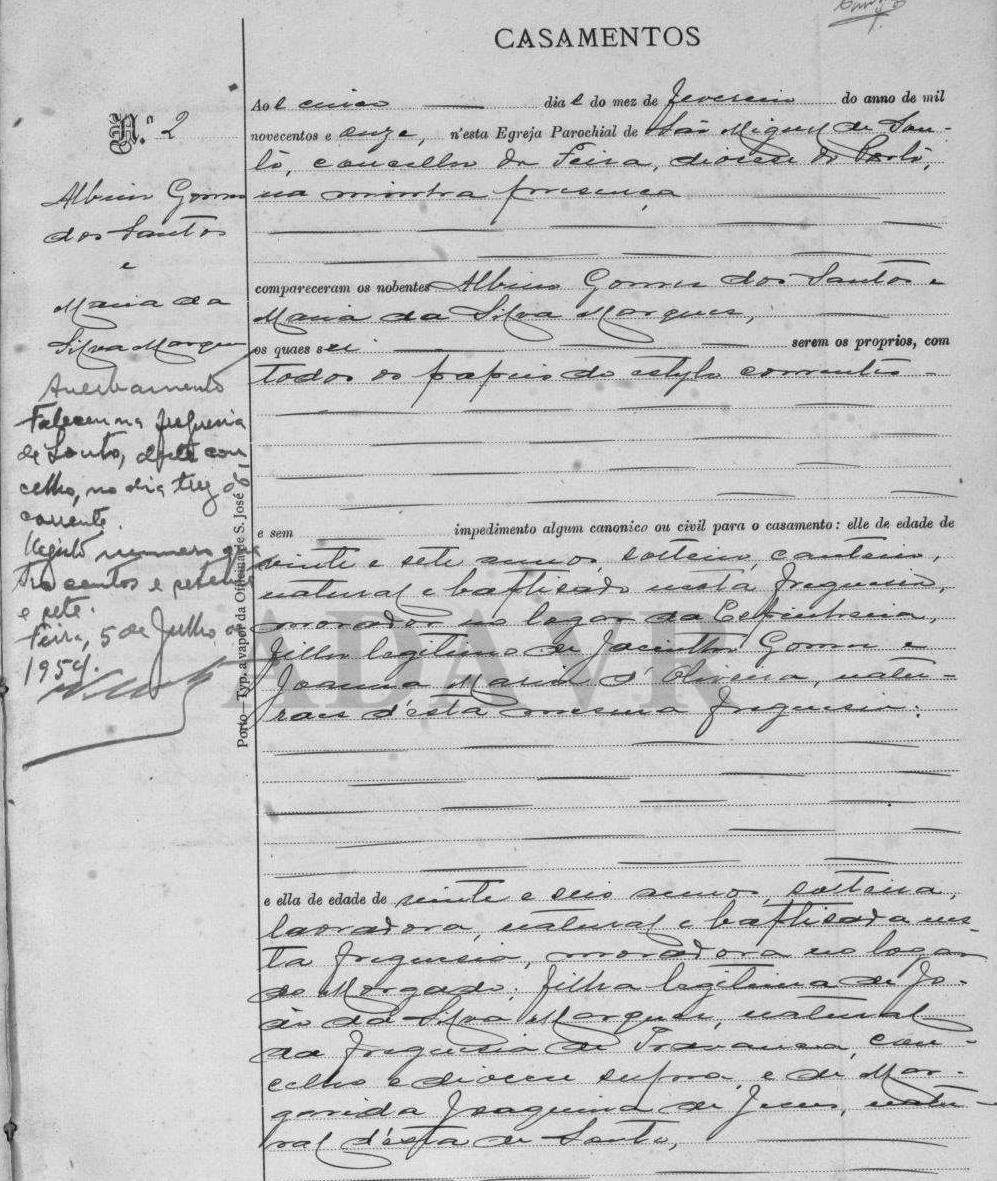 CASAMENTOS
N.º 2
Albino Gomes
dos Santos
e
Maria da
Silva Marques
Averbamento
Faleceu na freguesia
de Souto, deste con
celho, no dia trez do
corrente.
Registo numero qua
trocentos e setenta
e sete.
Feira, 5 de Julho de
1954.
Porto—Typ. a vapor da Officina de S. José
Aos cinco dias do mez de fevereiro do anno de mil
novecentos e onze, n'esta Egreja Parochial de São Miguel de Sou-
to, concelho da Feira, diocese do Porto,
na minha presença
compareceram os nubentes Albino Gomes dos Santos e
Maria da Silva Marques,
os quaes sei serem os proprios, com
todos os papeis do estylo correntes
e sem impedimento algum canonico ou civil para o casamento: elle de edade de
vinte e sete annos, solteiro, canteiro,
natural e baptisado nesta freguesia,
morador no logar da Espinheira,
filho legitimo de Jacintho Gomes e
Joanna Maria d'Oliveira, natu-
raes d'esta mesma freguesia:
e ella de edade de vinte e seis annos, solteira,
lavradora, natural e baptisada nes-
ta freguesia, moradora no logar
do Morgado; filha legitima de Jo-
ão da Silva Marques, natural
da freguesia de Travanca, con-
celho e diocese supra, e de Mar-
garida Joaquina de Jesus, natu-
ral d'esta de Souto,
ADAVR